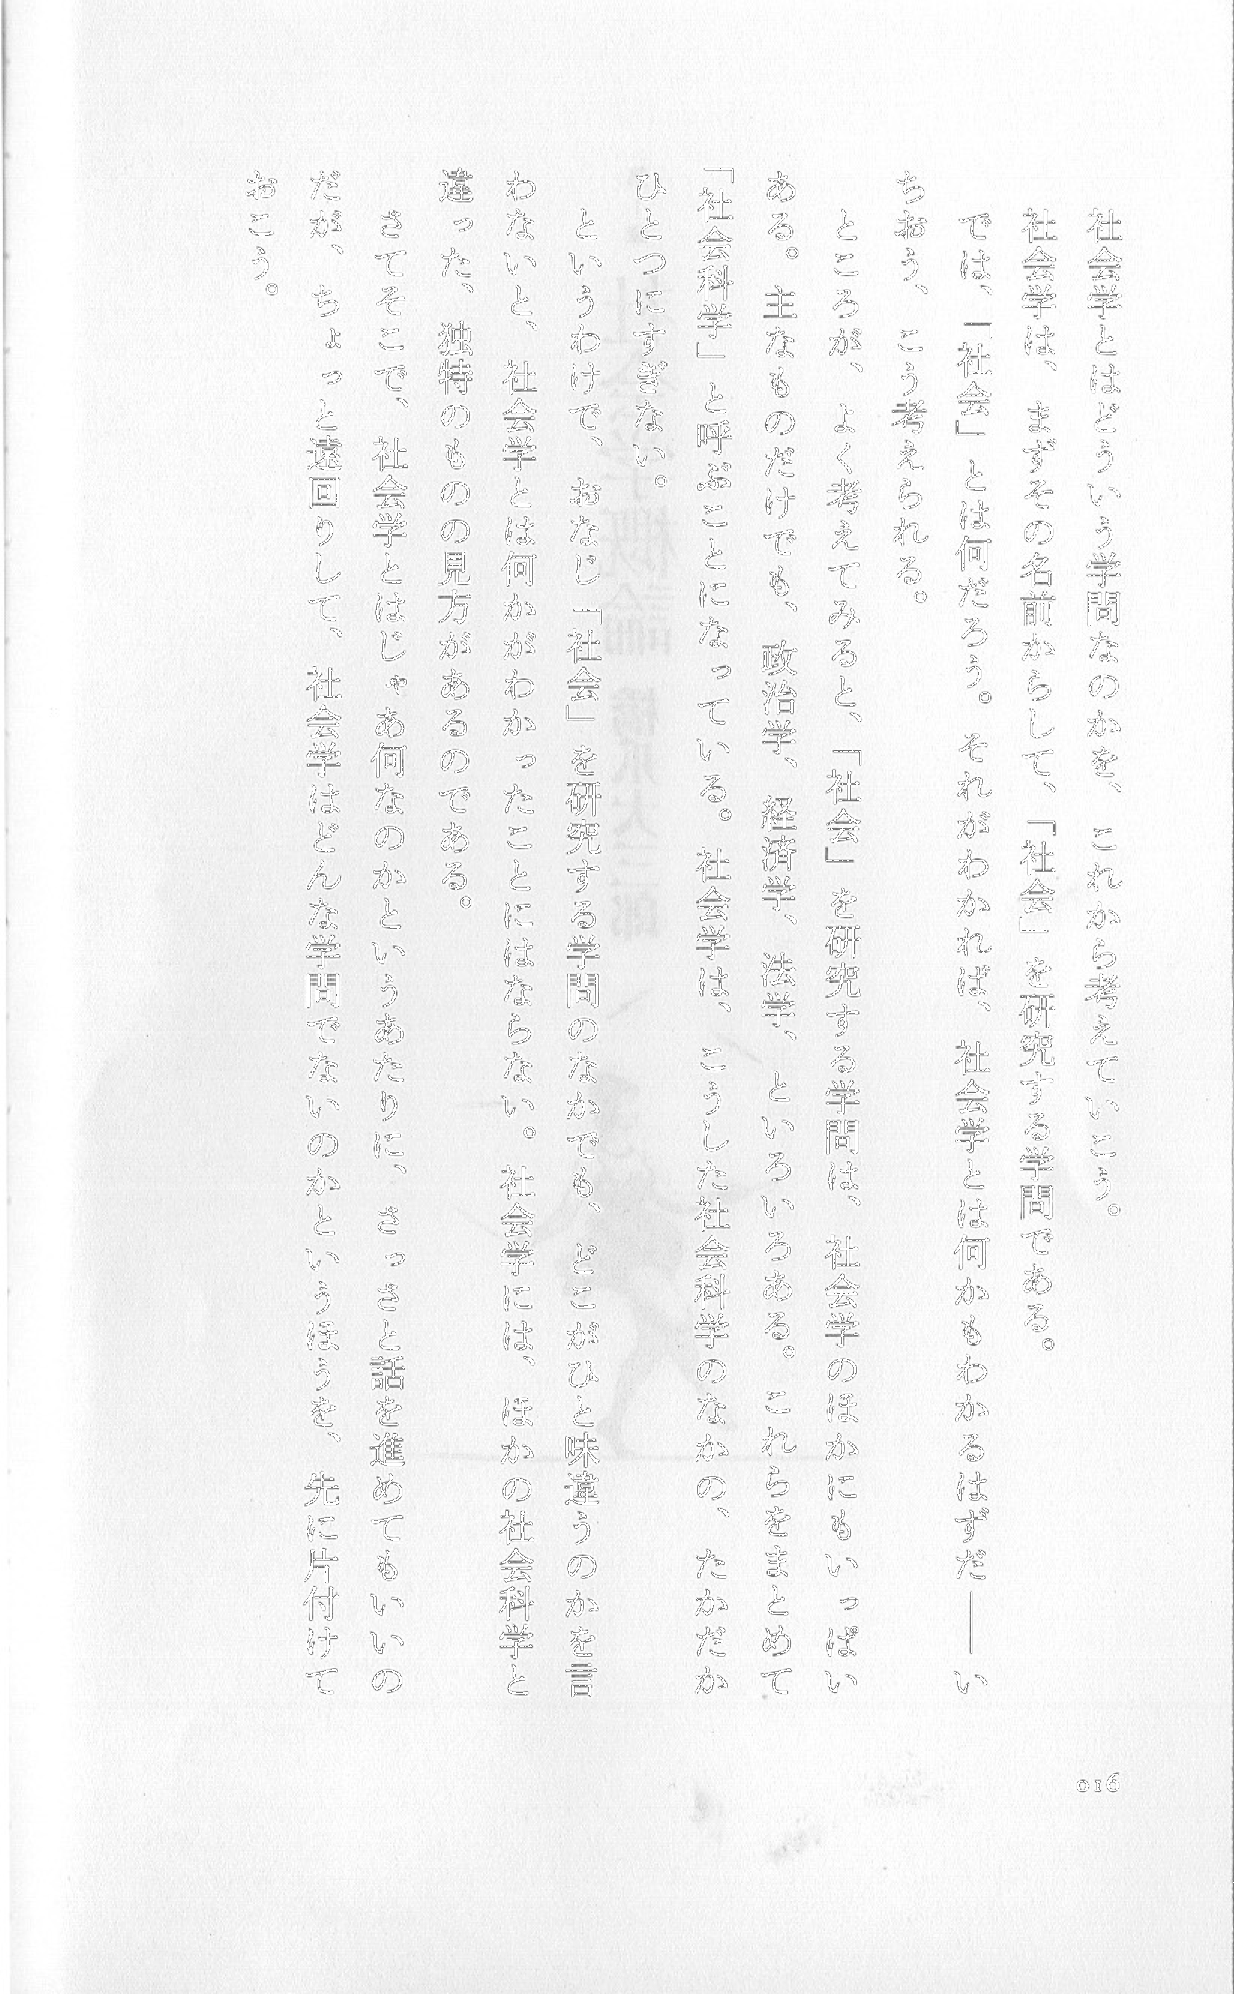 社会学とはどういう学問なのかを、これから考えていこう。
社会学は、まずその名前からして、「社会」を研究する学問である。
では、「社会」とは何だろう。それがわかれば、社会学とは何かもわかるはずだ――い
ちおう、こう考えられる。
ところが、よく考えてみると、「社会」を研究する学問は、社会学のほかにもいっぱい
ある。主なものだけでも、政治学、経済学、法学、といろいろある。これらをまとめて
「社会科学」と呼ぶことになっている。社会学は、こうした社会科学のなかの、たかだか
ひとつにすぎない。
というわけで、おなじ「社会」を研究する学問のなかでも、どこがひと味違うのかを言
わないと、社会学とは何かがわかったことにはならない。社会学には、ほかの社会科学と
違った、独特のものの見方があるのである。
さてそこで、社会学とはじゃあ何なのかというあたりに、さっさと話を進めてもいいの
だが、ちょっと遠回りして、社会学はどんな学問でないのかというほうを、先に片付けて
おこう。
016